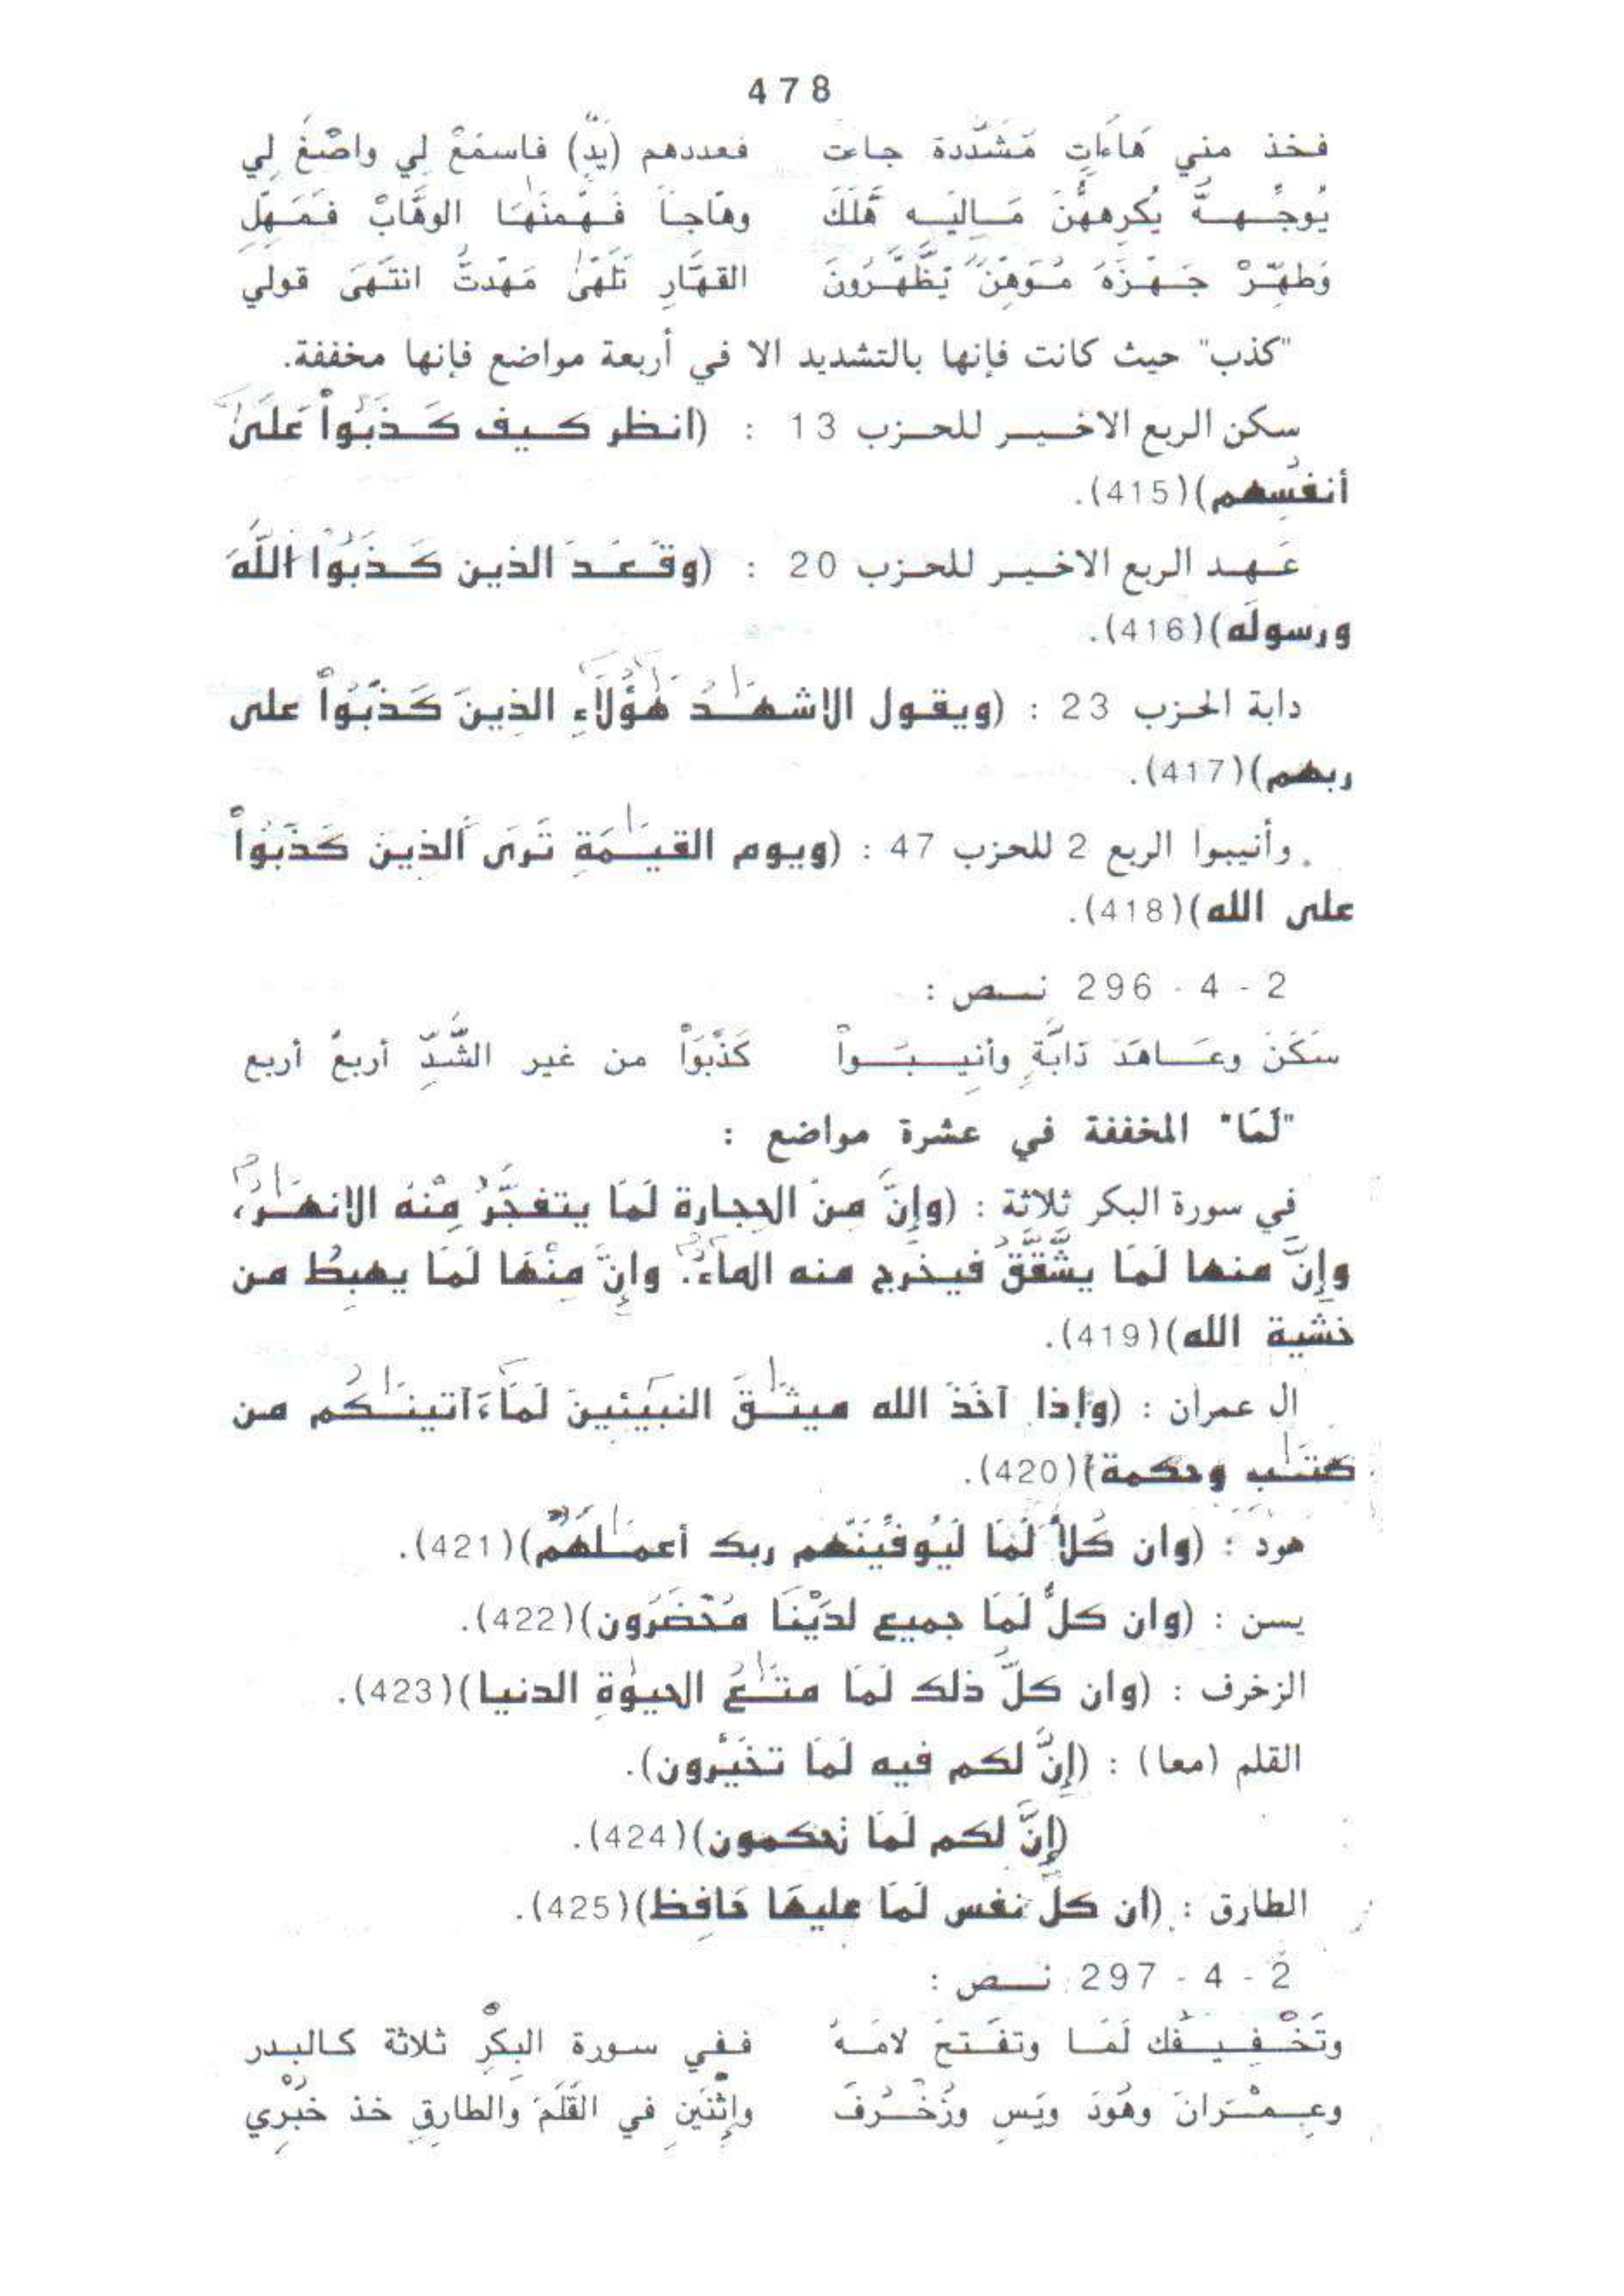 478
فخذ مني هَاءَاتٍ مُشَدَّدة جاءت فعددهم (يدٌ) فاسمَعْ لِي واصْغَ لِي
يُوجِّههُّ يُكرِههُّنَ مَالِيَه هَّلَكَ وهّاجاً فَهَّمنَٰهَا الوهَّابْ فَمَهِّلِ
وَطهِّرْ جَهَّزَهُ مُوَهِّنٌ يَظَّهَّرُونَ القهَّارِ تَلَهَّىٰ مَهَّدتُّ انتَهَى قولي
"كذب" حيث كانت فإنها بالتشديد الا في أربعة مواضع فإنها مخففة.
سكن الربع الاخير للحزب 13 : (انظر كيف كَذَبُواْ عَلَىٰ
أنفُسِهم)(415).
عَهد الربع الاخير للحزب 20 : (وقَعَدَ الذين كَذَبُواْ اللَّهَ
ورسولَه)(416).
دابة الحزب 23 : (ويقول الاشهَٰدُ هَٰؤُلَآءِ الذِينَ كَذَبُواْ على
ربهم)(417).
وأنيبوا الربع 2 للحزب 47 : (ويوم القيَٰمَةِ تَرَى الذِينَ كَذَبُواْ
على الله)(418).
2 - 4 - 296 نص :
سَكَنَ وعَاهَدَ دَابَّةٍ وأنِيبُواْ كَذَبُواْ من غير الشَّدِّ أربعُ أربع
"لَمَا" المخففة في عشرة مواضع :
في سورة البكر ثلاثة : (وإِنَّ مِنَ الحِجارة لَمَا يتفجَّرُ مِنْهُ الانهَٰرُ،
وإِنَّ منها لَمَا يشَّقَّقُ فيخرج منه الماءُ. وإِنَّ مِنْهَا لَمَا يهبِطُ من
خشية الله)(419).
ال عمران : (وإذا آخَذَ الله ميثَٰقَ النبيَئينَ لَمَآءَاتينَٰكُم من
كتَٰب وحكمة)(420).
هود : (وان كُلاًّ لَمَا لَيُوفِّيَنَّهم ربك أعمَٰلَهُمْ)(421).
يسن : (وان كلٌّ لَمَا جميع لدَيْنَا مُحْضَرُون)(422).
الزخرف : (وان كلُّ ذلك لَمَا متَٰعُ الحيوٰةِ الدنيا)(423).
القلم (معا) : (إِنَّ لكم فيه لَمَا تخَيَّرون).
(إِنَّ لكم لَمَا تحكمون)(424).
الطارق : (ان كلُّ نفس لَمَا عليهَا حَافِظ)(425).
2 - 4 - 297 نص :
وتَخْفِيفُك لَمَا وتفَتحُ لامَهُ ففي سورة البِكْرِ ثلاثة كالبدر
وعِمْرَانَ وهُودَ ويَس وزُخْرُفَ واثْنَينِ في القَلَمَ والطارِقِ خذ خَبْرِي